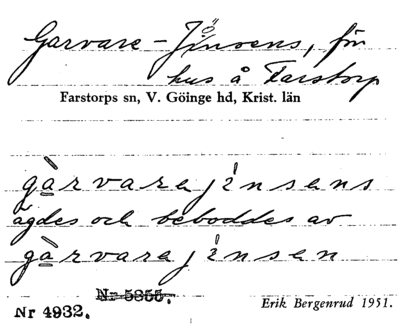 Garvare-Jönsens, för
hus å Farstorp
Farstorps sn, V. Göinge hd, Krist. län
gàrvarajinsens
ägdes och beboddes av
gàrvarajinsen
Nr 5355.
Nr 4932.
Erik Bergenrud 1951.